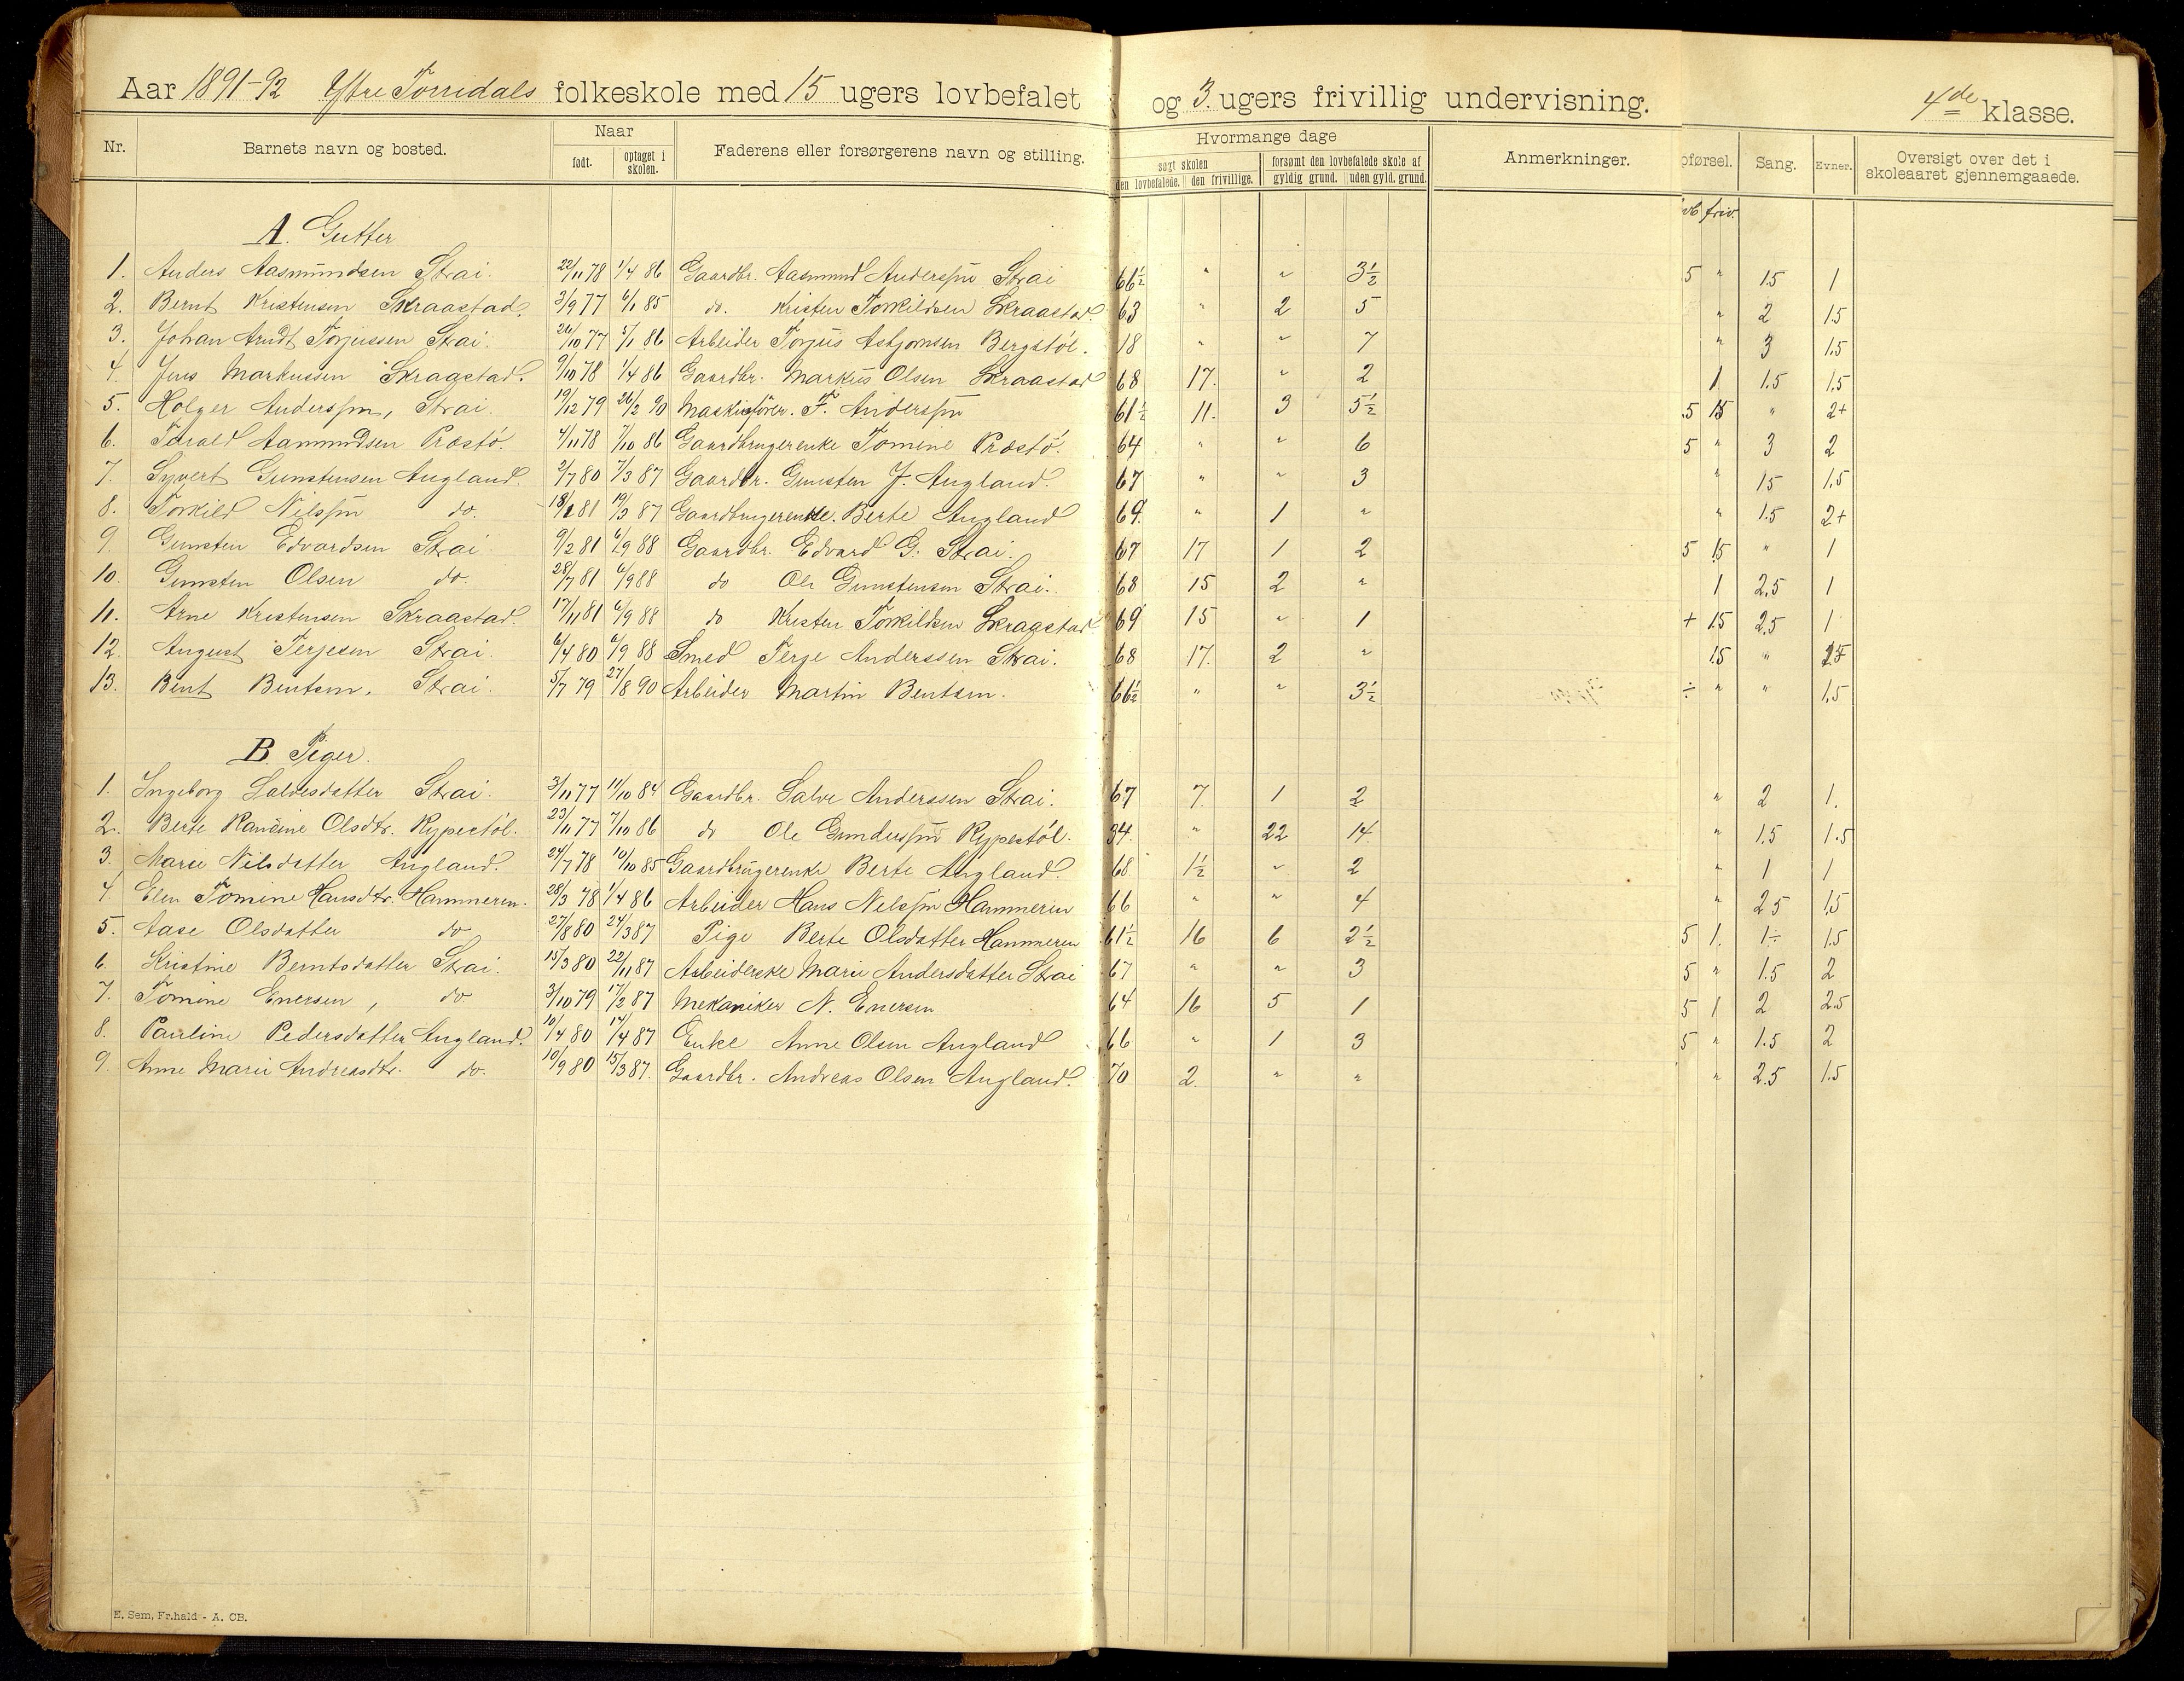 Aar 1891-92 Ytre Torridals folkeskole med 15 ugers lovbefalet og 3. ugers frivillig undervisning. 4de klasse.
Nr. Barnets navn og bosted. Naar født. optaget i skolen. Faderens eller forsørgerens navn og stilling. Hvormange dage søgt skolen den lovbefalede. den frivillige. forsømt den lovbefalede skole af gyldig grund. uden gyld. grund. Anmerkninger. pførsel. Sang. Evner. Oversigt over det i skoleaaret gjennemgaaede.
friv.
A. Gutter
1. Anders Aasmundsen Strai. 22/11 78 1/4 86 Gaardbr. Aasmund Anderssen Strai 66½ " " 3½ 5 " 1.5 1
2. Bernt Kristensen Skraastad. 3/9 77 6/1 85 do. Kristen Torkildsen Skraastad. 63 " 2 5 " 2 1.5
3. Johan Arndt Torjussen Strai. 26/10 77 5/1 86 Arbeider Torjus Asbjornsen Bergstøl. 18 " " 7 " 3 1.5
4. Jens Markussen Skraastad. 9/10 78 1/4 86 Gaardbr. Markus Olsen Skraastad 68 17. " 2 1 1.5 1.5
5. Holger Anderssen, Strai. 19/12 79 26/2 90 Maskinfører. F. Anderssen 61½ 11. 3 5½ .5 1.5 " 2+
6. Tarald Aamundsen Præstø. 4/11 78 7/10 86 Gaardbrugerenke Tomine Præstø. 64 " " 6 5 " 3 2
7. Syvert Gunstensen Augland. 2/7 80 7/3 87 Gaardbr. Gunsten J. Augland. 67 " " 3 " 1.5 1.5
8. Torkild Nilssen do. 18/1 81 19/3 87 Gaardbrugerenke. Berte Augland 69. " 1 " " 1.5 2+
9. Gunsten Edvardsen Strai 9/2 81 6/9 88 Gaardbr. Edvard G. Strai. 67 17 1 2 5 1.5 " 1
10. Gunsten Olsen do. 28/7 81 6/9 88 do Ole Gunstensen Strai. 68 15 2 " 1 2.5 1
11. Arne Kristensen Skraastad 17/11 81 6/9 88 do Kristen Torkildsen Skraastad 69 15 " 1 + 1.5 2.5 1
12. August Terjesen Strai. 6/4 80 6/9 88 Smed Terje Anderssen Strai. 68 17. 2 " 1.5 "
13. Bent Bentsen. Strai. 5/7 79 27/8 90 Arbeider Martin Bentsen. 66½ " " 3½ ÷ " " 1.5
B. Piger.
1. Ingeborg Salvesdatter Strai. 3/11 77 11/10 84 Gaardbr. Salve Anderssen Strai. 67 7 1 2 " 2 1.
2. Berte Olsdtr. Rypestøl. 23/11 77 7/10 86 do Ole Gunderssen Rypestøl. 34. " 22 14 " 1.5 1.5
3. Marie Nilsdatter Augland. 24/7 78 10/10 85 Gaardbrugerenke Berte Augland. 68 1½ " 2 " 1 1
4. Elen Tomine Hansdtr. Hammeren. 28/3 78 1/4 86 Arbeider Hans Nilssen Hammeren 66 " " 4 " 2.5 1.5
5. Aase Olsdatter do 27/8 80 24/3 87 Pige Berte Olsdatter Hammeren 61½ 16 6 2½ 5 1. 1÷ 1.5
6. Kristine Berntsdatter Strai. 15/3 80 22/11 87 Arbeiderske Marie Andersdatter Strai 67 " " 3 5 " 1.5 2
7. Tomine Enersen, do 3/10 79 17/2 87 Mekaniker N. Enersen 64 16 5 1 5 1 2 2.5
8. Pauline Pedersdatter Augland. 10/4 80 14/4 87 Enke Anne Olsen Augland 66 " 1 3 5 " 1.5 2
9. Anne Marie Andreasdtr. do. 10/9 80 15/3 87. Gaardbr. Andreas Olsen Augland. 70 2. " " " 2.5 1.5
E. Sem, Fr.hald - A. CB.